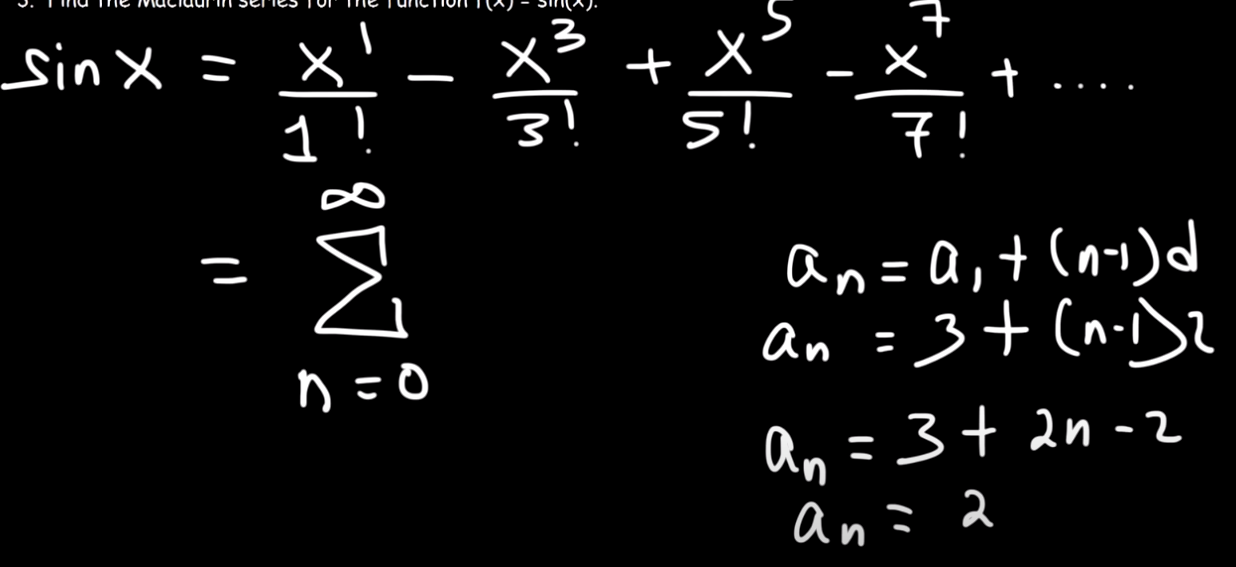 3. Find the Maclaurin series for the function f(x) = sin(x).
sin x = x^1/1! - x^3/3! + x^5/5! - x^7/7! + ....
= ∞ Σ n=0
a_n = a_1 + (n-1)d
a_n = 3 + (n-1)2
a_n = 3 + 2n - 2
a_n = 2